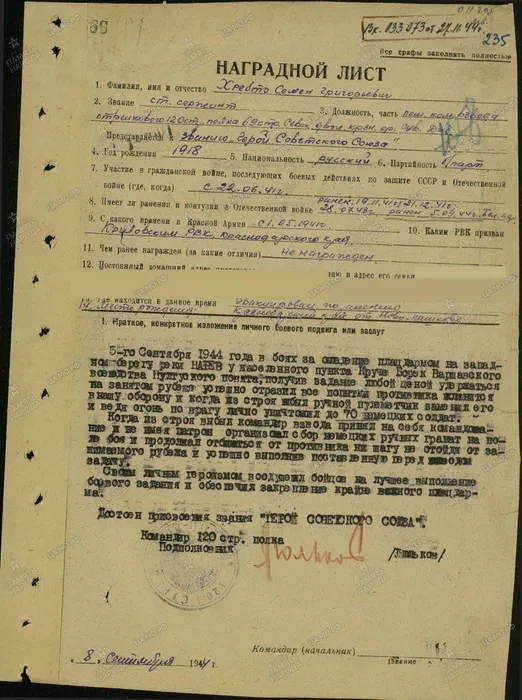 86
Вх. 033073 от 27.11.44г.
235
Все графы заполнять полностью
НАГРАДНОЙ ЛИСТ
1. Фамилия, имя и отчество Хребто Семен Григорьевич
2. Звание ст. сержант 3. Должность, часть пом. ком. взвода
стрелкового 120 стр. полка 69 стр. Севск. дваж. кразн. орд. Сув.
Представляется к званию "Герой Советского Союза"
4. Год рождения 1918 5. Национальность русский 6. Партийность б/парт
7. Участие в гражданской войне, последующих боевых действиях по защите СССР и Отечественной
войне (где, когда) с 22.06.41г.
8. Имеет ли ранения и контузии в Отечественной войне ранен: 19.11.41г, 21.12.41г.
28.07.43г. ранен 5.09.44г.
9. С какого времени в Красной Армии 01.05.1941г. 10. Каким РВК призван
РВК, Краснодарского края
11. Чем ранее награжден (за какие отличия) не награжден
12. Постоянный домашний адрес
нию и адрес его семьи
13. Где находится в данное время эвакуирован по ранению
14. Место рождения Краснодарский край ст. Ново-
1. Краткое, конкретное изложение личного боевого подвига или заслуг
5-го Сентября 1944 года в боях за овладение плацдармом на запад-
ном берегу реки НАРЕВ у населенного пункта Круче Борек Варшавского
воеводства Пултуского повята, получив задание любой ценой удержаться
на занятом рубеже успешно отразил все попытки противника вклинится
в нашу оборону и когда из строя выбыл ручной пулеметчик заменил его
и ведя огонь по врагу лично уничтожил до 70 немецких солдат.
Когда из строя выбыл командир взвода принял на себя командова-
ние и не имея патрон организовал сбор немецких ручных гранат на по-
ле боя и продолжал отбиваться от противника ни шагу не отойдя от за-
нимаемого рубежа и успешно выполнив поставленную перед взводом
задачу.
Своим личным героизмом воодушевил бойцов на лучшее выполнение
боевого задания и обеспечил закрепление крайне важного плацдар-
ма.
Достоен присвоения звания "ГЕРОЙ СОВЕТСКОГО СОЮЗА".
Командир 120 стр. полка
Подполковник
" 8 " Сентября 1944 г.
Командир (начальник)
(Звание)